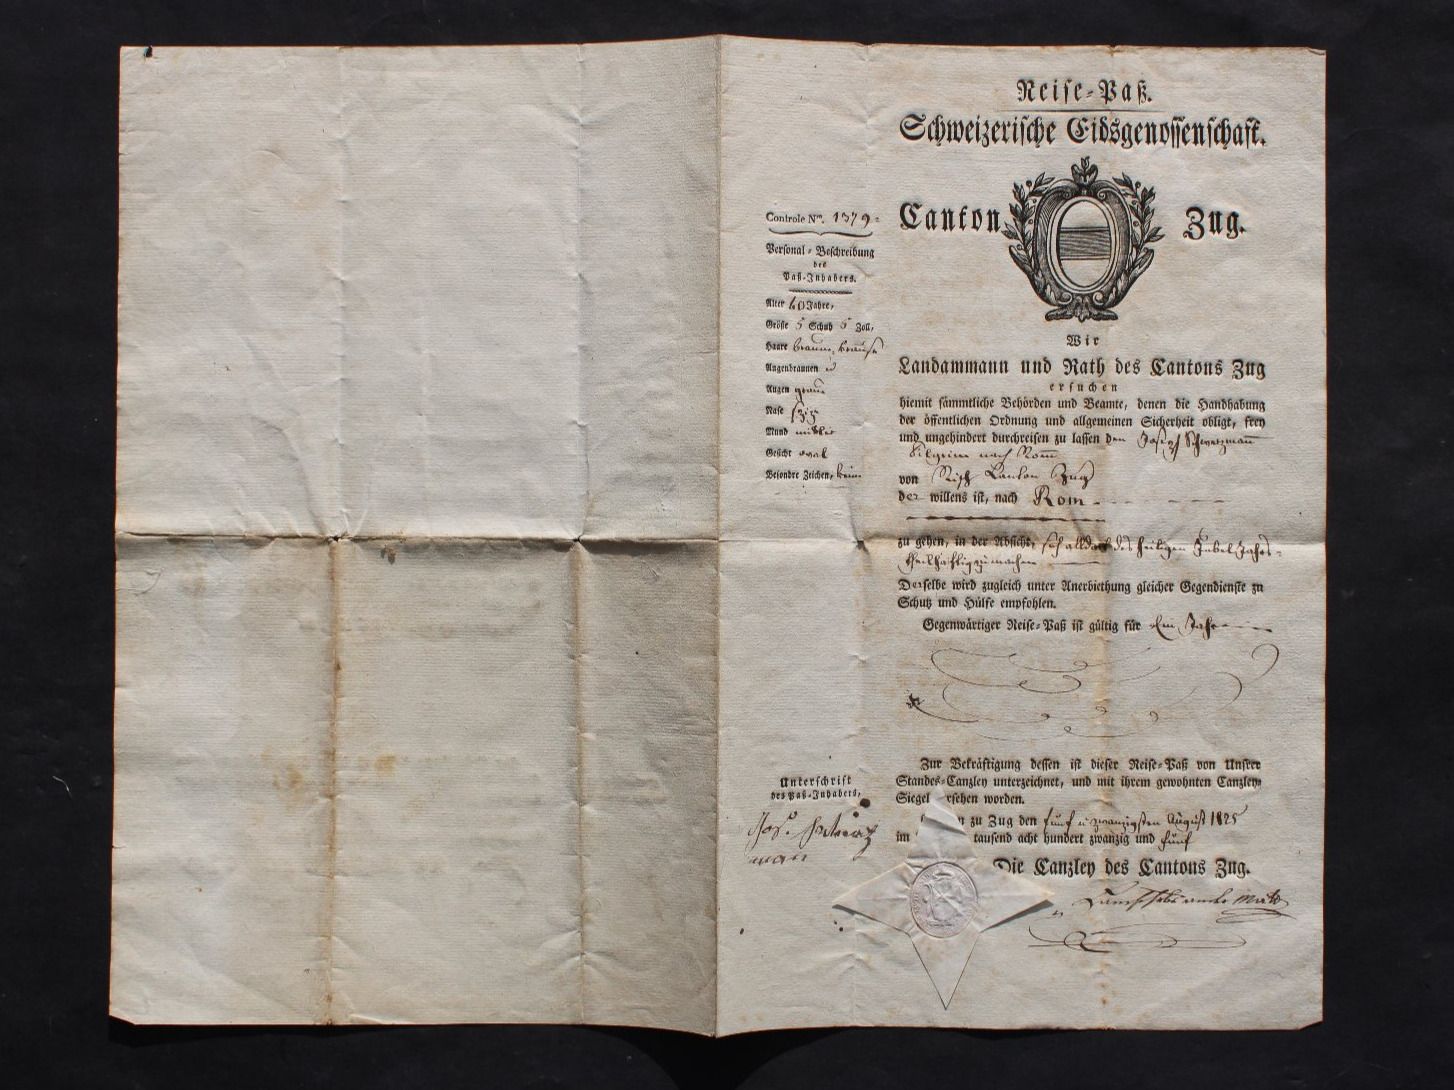 Reise-Paß.
Schweizerische Eidsgenossenschaft.
Canton Zug.
Controle Nro. 1379.
Personal-Beschreibung
des
Paß-Inhabers.
Alter 40 Jahre,
Größe 5 Schuh 6 Zoll,
Haare braun,
Augenbraunen
Augen grau
Nase
Mund mittler
Gesicht oval
Besondre Zeichen, keine
Wir
Landammann und Rath des Cantons Zug
ersuchen
hiemit sämmtliche Behörden und Beamte, denen die Handhabung
der öffentlichen Ordnung und allgemeinen Sicherheit obligt, frey
und ungehindert durchreisen zu lassen den Joseph Schwerzmann
Pilgrim nach Rom
von Risch Canton Zug
der willens ist, nach Rom
zu gehen, in der Absicht, sich alldort des heiligen Jubel Jahrs
theilhaftig zu machen
Derselbe wird zugleich unter Anerbiethung gleicher Gegendienste zu
Schutz und Hülfe empfohlen.
Gegenwärtiger Reise-Paß ist gültig für Ein Jahr
Zur Bekräftigung dessen ist dieser Reise-Paß von Unsrer
Standes-Canzley unterzeichnet, und mit ihrem gewohnten Canzley-
Siegel ersehen worden.
zu Zug den fünf u zwanzigsten August 1825
im tausend acht hundert zwanzig und fünf
Die Canzley des Cantons Zug.
Unterschrift
des Paß-Inhabers,
Jos. Schwerz
man